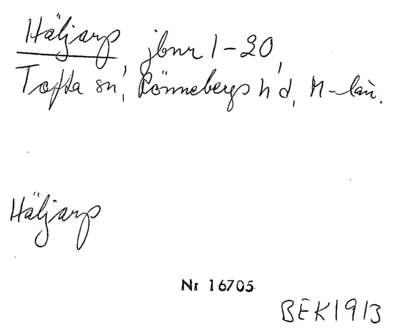 Häljarp, jbnr 1-20,
Tofta sn, Rönnebergs hd, M-län.
Häljarp
Nr 16705
BEK1913